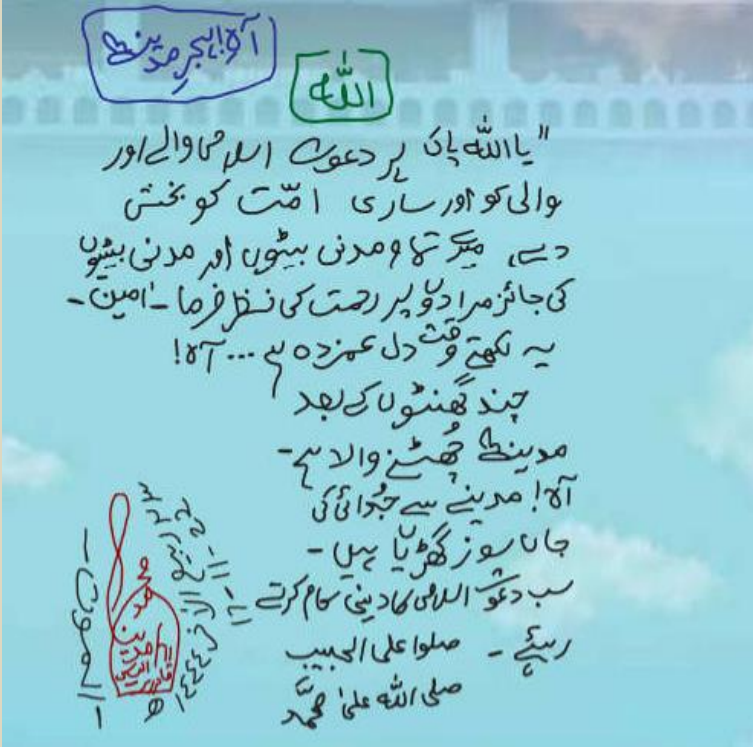 آہ! ہجرِ مدینہ
اللہ
"یا اللہ پاک ہر دعوت اسلامی والے اور
والی کو اور ساری امّت کو بخش
دے، میرے تمام مدنی بیٹوں اور مدنی بیٹیوں
کی جائز مرادوں پر رحمت کی نظر فرما۔ امین۔
یہ لکھتے وقت دل غمزدہ ہے... آہ!
چند گھنٹوں کے بعد
مدینہ چُھٹنے والا ہے۔
آہ! مدینے سے جُدائی کی
جاں سوز گھڑیاں ہیں۔
سب دعوت اسلامی کا دینی کام کرتے
رہئے۔ صلوا علی الحبیب
صلی اللہ علیٰ محمَّد
محمد
الیاس
قادری
١٤٤٤ھ